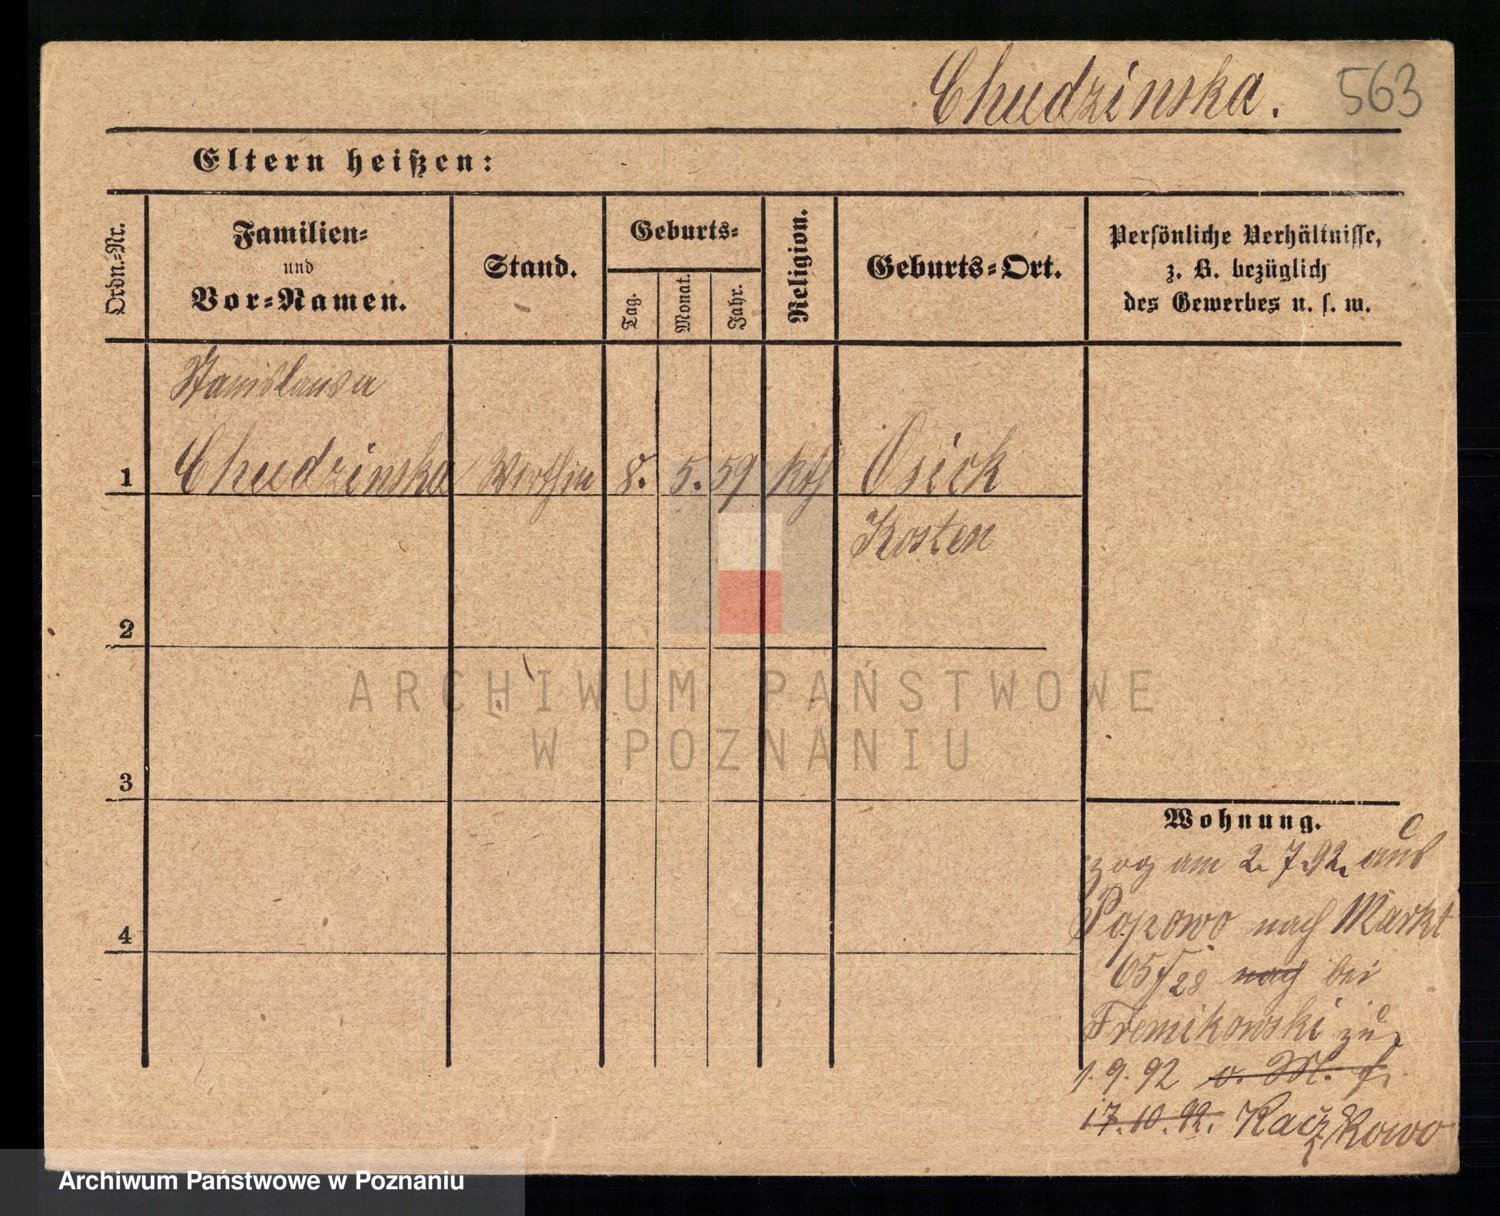 Chudzinska.
563
Eltern heißen:
Ordn.-Nr.
Familien-
und
Vor-Namen.
Stand.
Geburts-
Tag.
Monat.
Jahr.
Religion.
Geburts-Ort.
Persönliche Verhältnisse,
z. B. bezüglich
des Gewerbes u. s. w.
Stanislawa
1 Chudzinska Wirthin 8. 5. 59 kth Osiek
Kosten
2
3
4
Wohnung.
zog am 2.7.92. aus
Popowo nach Markt
65/28 nach bei
zu
1.9.92 v. M. f.
17.10.92. Kaczkowo
ARCHIWUM PAŃSTWOWE
W POZNANIU
Archiwum Państwowe w Poznaniu